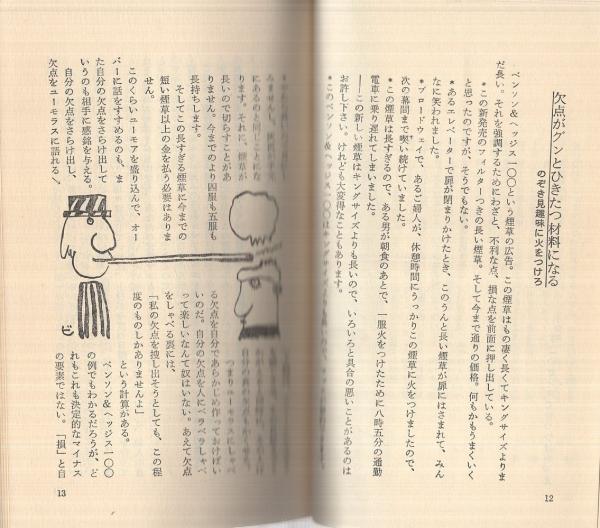 欠点がグンとひきたつ材料になる
のぞき見趣味に火をつけろ
ベンソン&ヘッジス一〇〇という煙草の広告。この煙草はもの凄く長くてキングサイズよりま
だ長い。それを強調するためにわざと、不利な点、損な点を前面に押し出している。
*この新発売のフィルターつきの長い煙草。そして今まで通りの価格。何もかもうまくいく
と思ったのですが、そうでもない。
*あるエレベーターで扉が閉まりかけたとき、このうんと長い煙草が扉にはさまれて、みん
なに笑われました。
*ブロードウェイで、あるご婦人が、休憩時間にうっかりこの煙草に火をつけましたので、
次の幕間まで喫い続けていました。
*この煙草は長すぎるので、ある男が朝食のあとで、一服火をつけたために八時五分の通勤
電車に乗り遅れてしまいました。
――この新しい煙草はキングサイズよりも長いので、いろいろと具合の悪いことがあるのは
お許し下さい。けれども大変得なこともあります。
*このベンソン&ヘッジス一〇〇はキングサイズ
12
にあるのと同じことにな
ります。それに、煙草が
長いので切らすことがあ
りません。今までのより四服も五服も
長持ちします。
そしてこの長すぎる煙草に今までの
短い煙草以上の金を払う必要はありま
せん。
このくらいユーモアを盛り込んで、オー
バーに話をすすめるのも、ま
た自分の欠点をさらけ出して
いうのも相手に感銘を与える。
自分の欠点をさらけ出し、
欠点をユーモラスに語れる
つまりユーモラスにしゃべ
る欠点を自分であらかじめ作っておけばい
いのだ。自分の欠点を人にベラベラしゃべ
って楽しいなんて奴はいない。あえて欠点
をしゃべる裏には、
「私の欠点を捜し出そうとしても、この程
度のものしかありませんよ」
という計算がある。
ベンソン&ヘッジス一〇〇
の例でもわかるだろうが、ど
れもこれも決定的なマイナス
の要素ではない。「損」と自
13